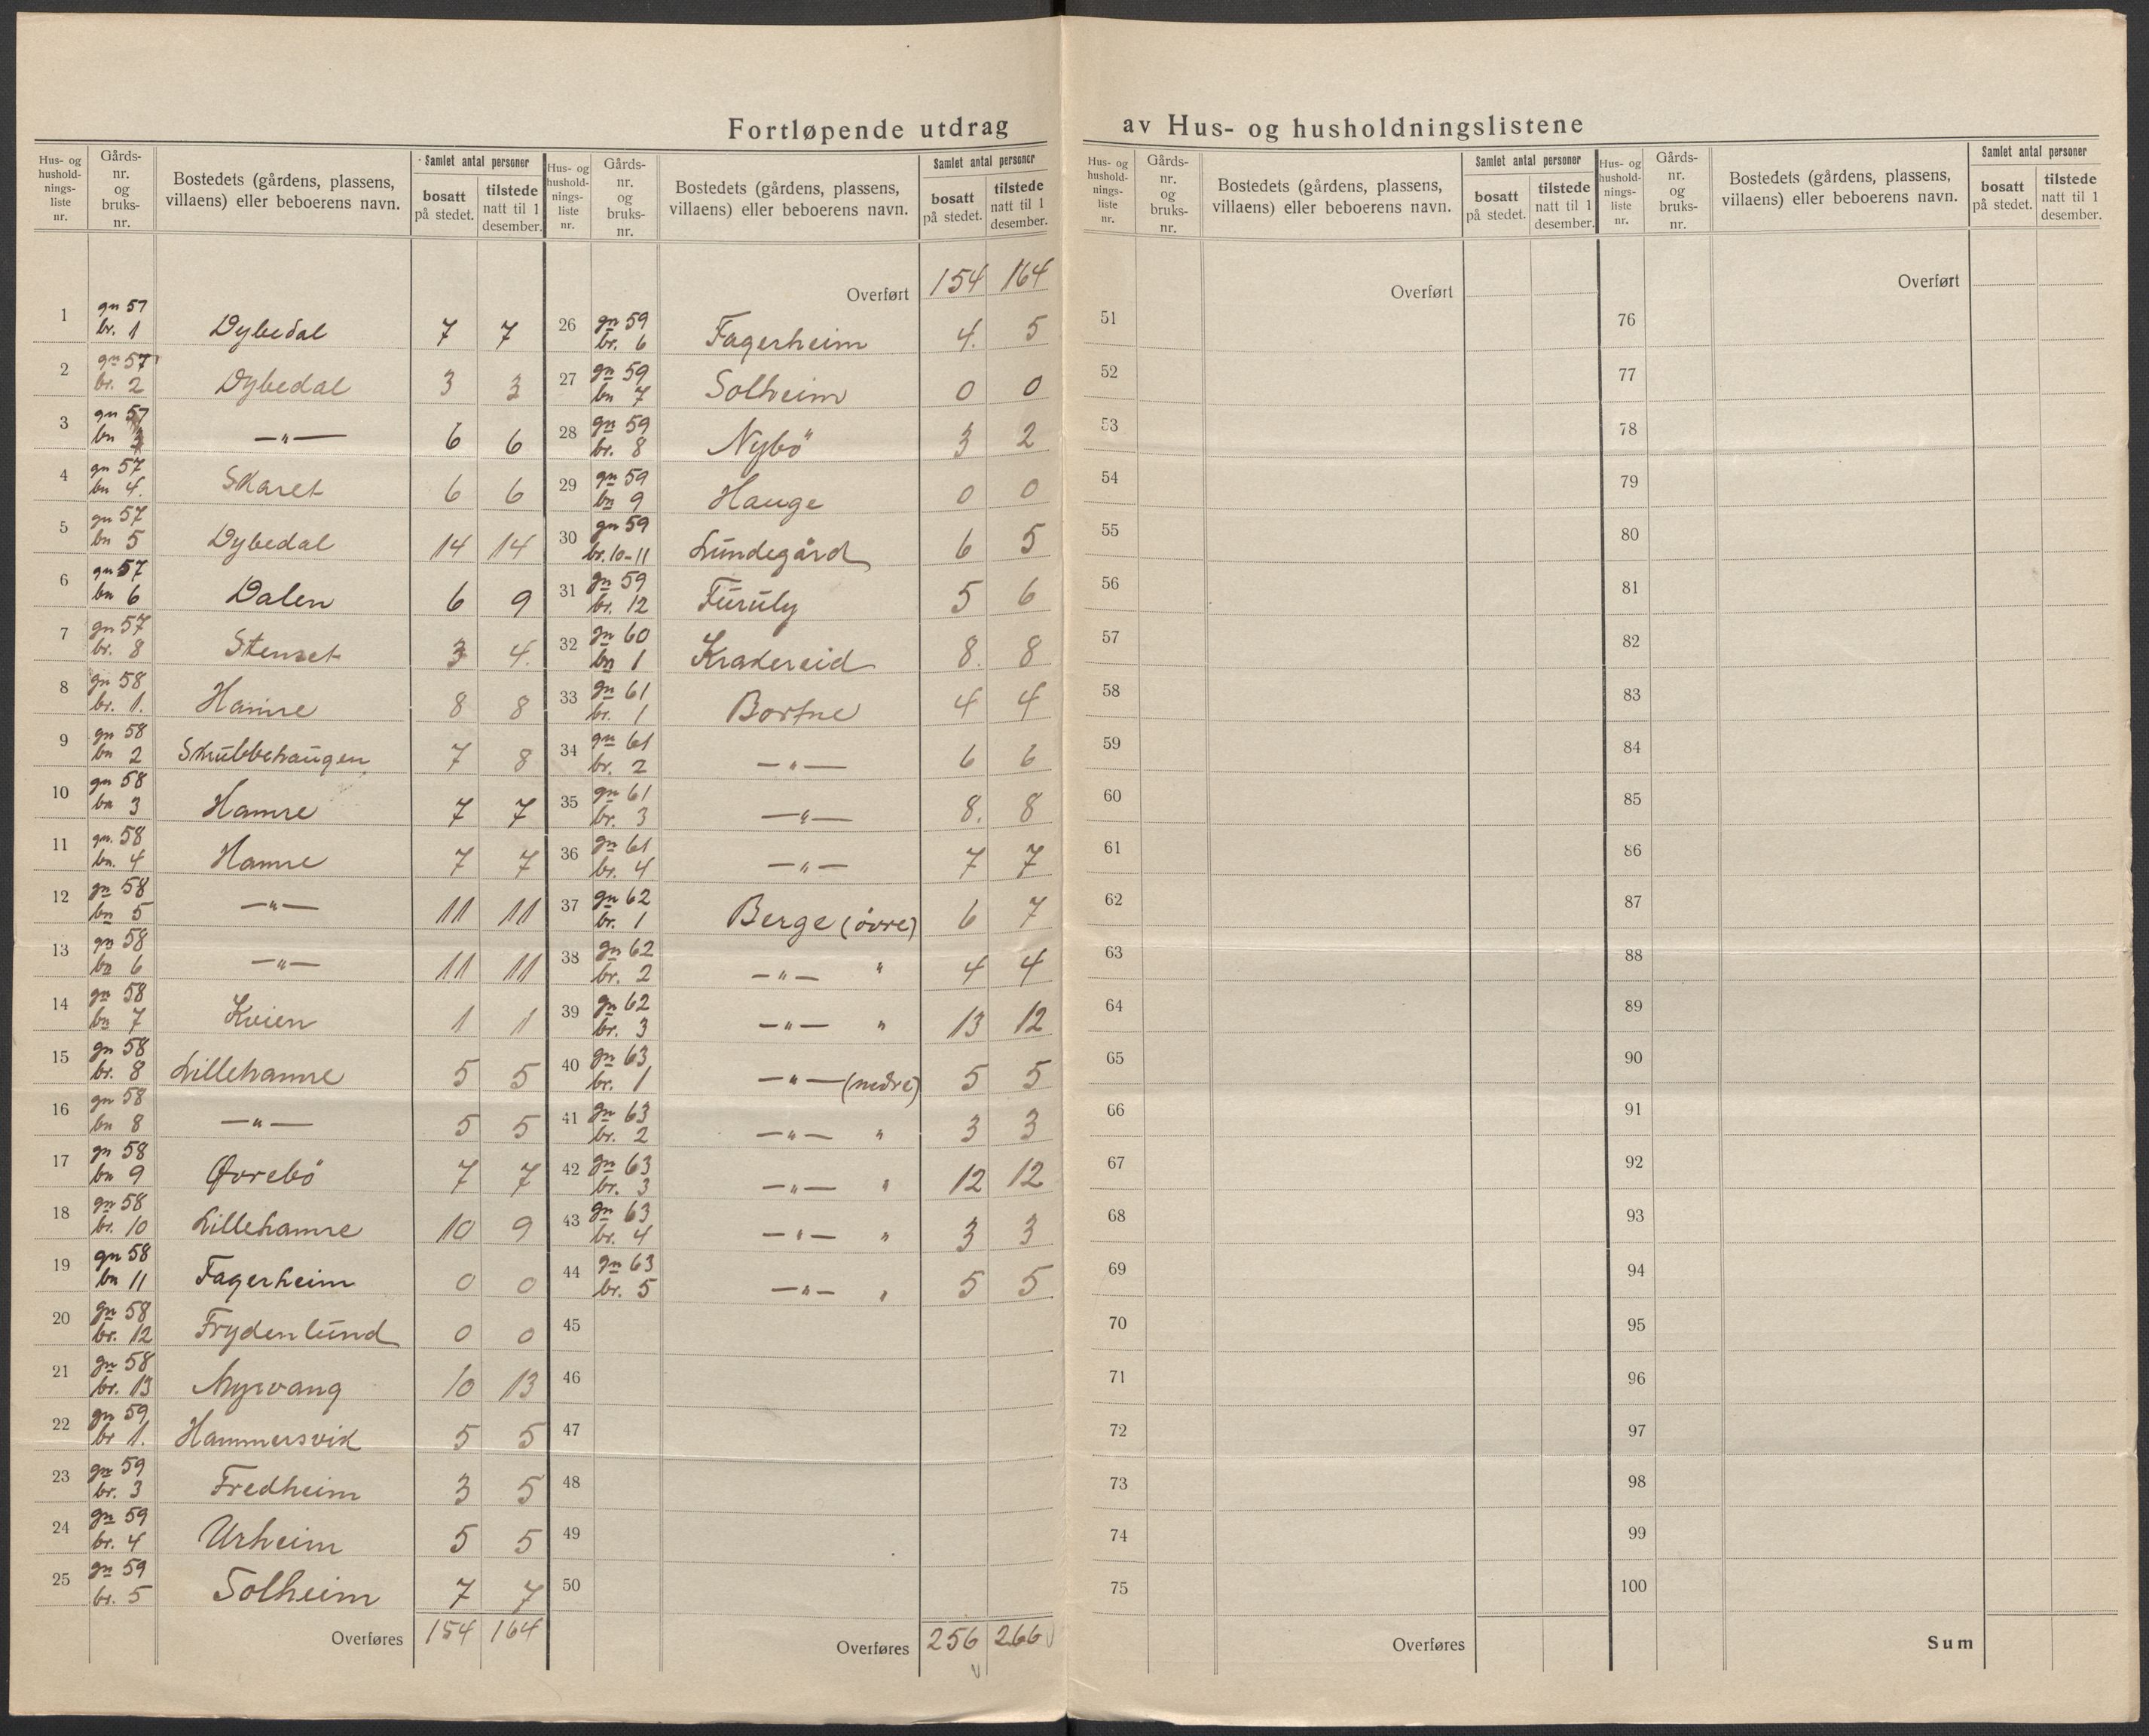 Fortløpende utdrag av Hus- og husholdningslistene
Hus- og hushold-nings-liste nr. | Gårds-nr. og bruks-nr. | Bostedets (gårdens, plassens, villaens) eller beboerens navn. | Samlet antal personer | bosatt på stedet. | tilstede natt til 1 desember.
1 gn 57 br. 1 Dybedal 7 7
2 gn 57 br. 2 Dybedal 3 3
3 gn 57 bn 3 —"— 6 6
4 gn 57 bn 4. Skaret 6 6
5 gn 57 bn 5 Dybedal 14 14
6 gn 57 bn 6 Dalen 6 9
7 gn 57 br. 8 Stenset 3 4.
8 gn 58 br. 1. Hamre 8 8
9 gn 58 bn 2 Skubbehaugen 7 8
10 gn 58 bn 3 Hamre 7 7
11 gn. 58 bn. 4 Hamre 7 7
12 gn 58 bn 5 —"— 11 11
13 gn 58 bn 6 —"— 11 11
14 gn 58 bn 7 Kvien 1 1
15 gn 58 br. 8 Lillehamre 5 5
16 gn 58 bn 8 —"— 5 5
17 gn 58 bn 9 Øvrebö 7 7
18 gn 58 br. 10 Lillehamre 10 9
19 gn 58 bn 11 Fagerheim 0 0
20 gn 58 br. 12 Frydenlund 0 0
21 gn 58 br. 13 Myrvang 10 13
22 gn 59 br 1. Hammersvik 5 5
23 gn 59 br. 3 Fredheim 3 5
24 gn 59 br. 4 Urheim 5 5
25 gn 59 br. 5 Solheim 7 7
Overføres 154 164
Hus- og hushold-nings-liste nr. | Gårds-nr. og bruks-nr. | Bostedets (gårdens, plassens, villaens) eller beboerens navn. | Samlet antal personer | bosatt på stedet. | tilstede natt til 1 desember.
Overført 154 164
26 gn 59 br. 6 Fagerheim 4. 5
27 gn 59 bn 7 Solheim 0 0
28 gn 59 br. 8 Nybö 3 2
29 gn 59 bn 9 Hauge 0 0
30 gn 59 br. 10-11 Lundegård 6 5
31 gn 59 br. 12 Furuly 5 6
32 gn 60 bn 1 Krakereid 8. 8
33 gn 61 br. 1 Bortne 4 4
34 gn 61 br. 2 —"— 6 6
35 gn 61 br. 3 —"— 8. 8
36 gn 61 br. 4 —"— 7 7
37 gn 62 br. 1 Berge (övre) 6 7
38 gn 62 br. 2 —"— " 4 4
39 gn 62 br. 3 —"— " 13 12
40 gn 63 br. 1 —"— (nedre) 5 5
41 gn 63 br. 2 —"— " 3 3
42 gn 63 br. 3 —"— " 12 12
43 gn 63 br. 4 —"— " 3 3
44 gn 63 br. 5 —"— " 5 5
45
46
47
48
49
50
Overføres 256 266
Hus- og hushold-nings-liste nr. | Gårds-nr. og bruks-nr. | Bostedets (gårdens, plassens, villaens) eller beboerens navn. | Samlet antal personer | bosatt på stedet. | tilstede natt til 1 desember.
Overført
51
52
53
54
55
56
57
58
59
60
61
62
63
64
65
66
67
68
69
70
71
72
73
74
75
Overføres
Hus- og hushold-nings-liste nr. | Gårds-nr. og bruks-nr. | Bostedets (gårdens, plassens, villaens) eller beboerens navn. | Samlet antal personer | bosatt på stedet. | tilstede natt til 1 desember.
Overført
76
77
78
79
80
81
82
83
84
85
86
87
88
89
90
91
92
93
94
95
96
97
98
99
100
Sum